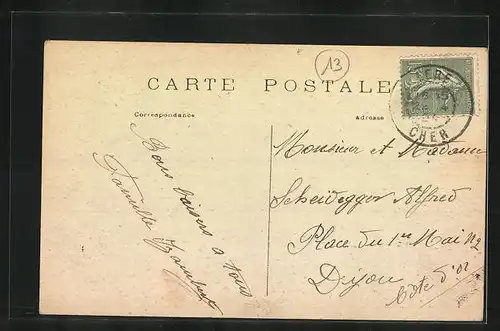 13
CARTE POSTALE
Correspondance
Adresse
CHER
Bons baisers à tous
Famille
Monsieur et Madame
Scheidegger Alfred
Place du 1er Mai N2
Dijon
Côte d'or